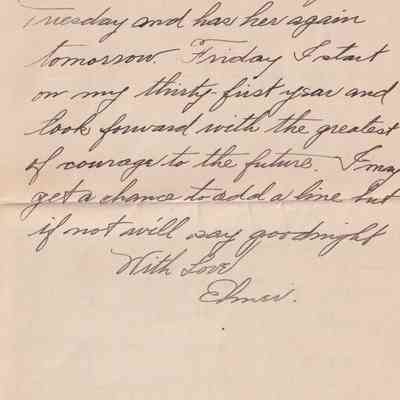 Tuesday and has her again
tomorrow. Friday I start
on my thirty-first year and
look forward with the greatest
of courage to the future. I may
get a chance to add a line but
if not will say goodnight
With Love
Elmer.